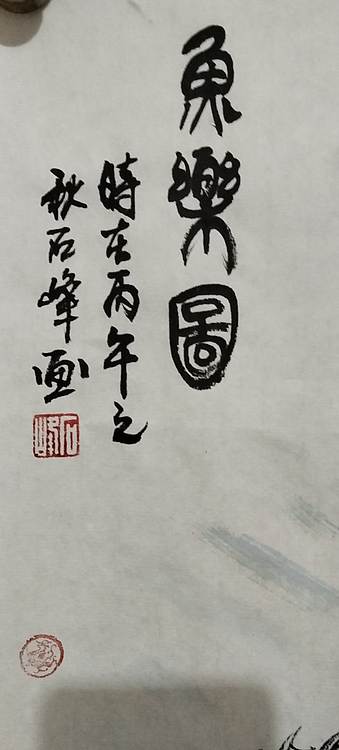 魚樂圖
時在丙午之
秋石峰画
石峰